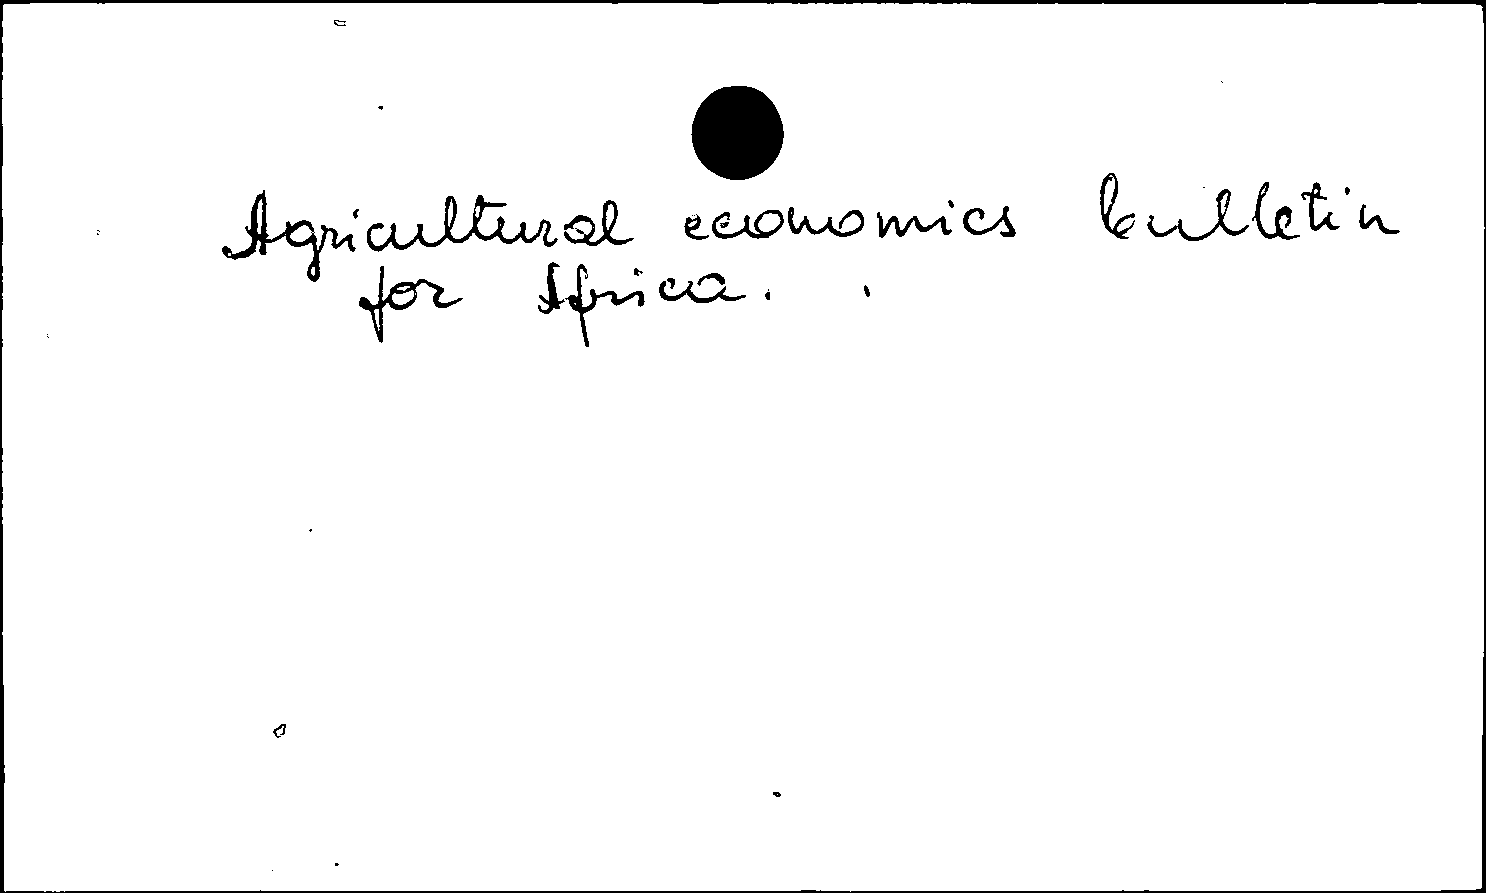 Agricultural economics bulletin
for Africa.